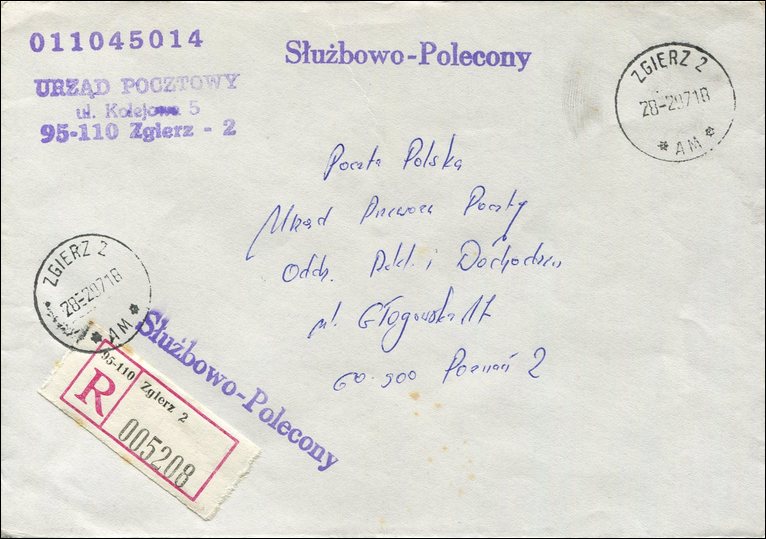 011045014
Służbowo-Polecony
URZĄD POCZTOWY
ul. Kolejowa 5
95-110 Zgierz - 2
ZGIERZ 2
28-29718
* AM *
Poczta Polska
Urząd Przewozu Poczty
Oddz. Rekl. i Dochodzeń
ul. Głogowska 17
60-900 Poznań 2
ZGIERZ 2
28-29718
* AM *
Służbowo-Polecony
R
95-110 Zgierz 2
005208